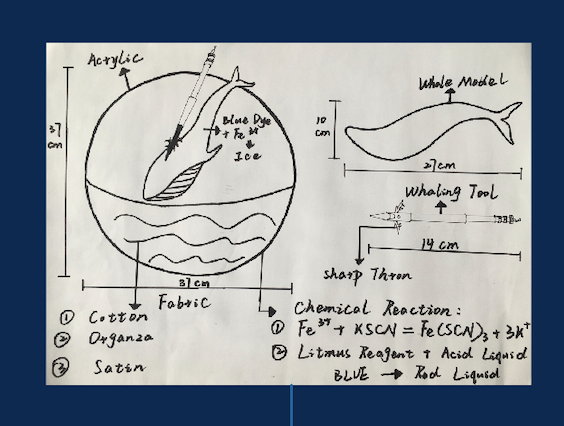 Acrylic
37
cm
Blue Dye
+ Fe³⁺
Ice
37 cm
Fabric
① Cotton
② Organza
③ Satin
Whale Model
10
cm
27 cm
Whaling Tool
14 cm
sharp Thron
Chemical Reaction:
① Fe³⁺ + KSCN = Fe(SCN)₃ + 3K⁺
② Litmus Reagent + Acid Liquid
BLUE → Red Liquid